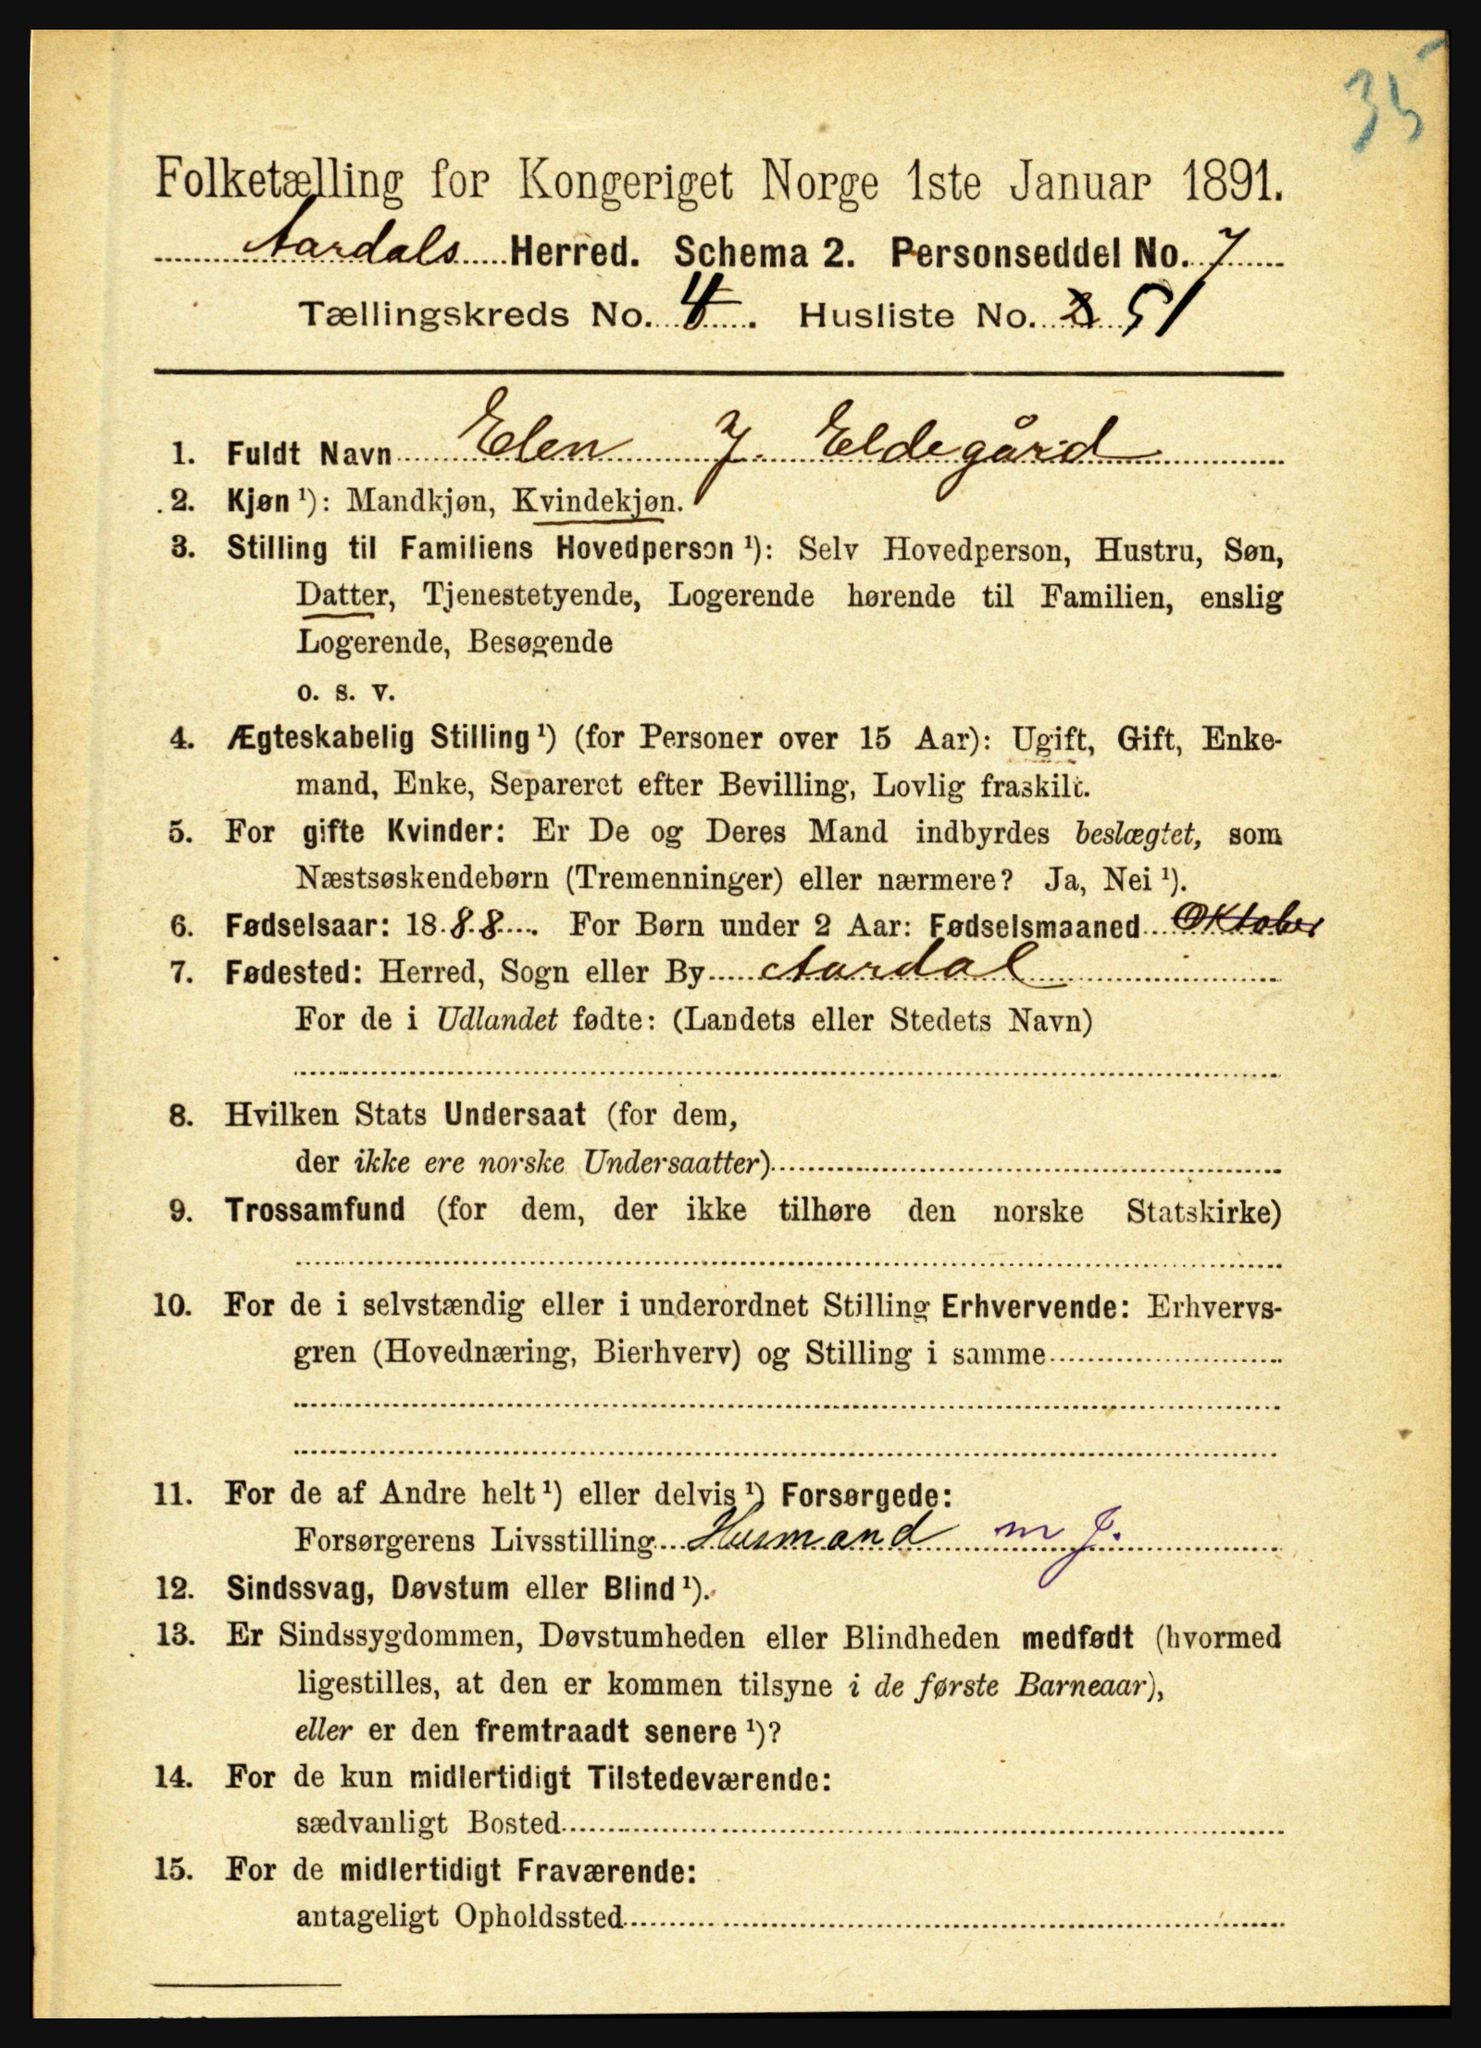 35
Folketælling for Kongeriget Norge 1ste Januar 1891.
Aardals Herred. Schema 2. Personseddel No. 7
Tællingskreds No. 4. Husliste No. 51
1. Fuldt Navn Elen J. Eldegård
2. Kjøn ¹): Mandkjøn, Kvindekjøn.
3. Stilling til Familiens Hovedperson ¹): Selv Hovedperson, Hustru, Søn,
Datter, Tjenestetyende, Logerende hørende til Familien, enslig
Logerende, Besøgende
o. s. v.
4. Ægteskabelig Stilling ¹) (for Personer over 15 Aar): Ugift, Gift, Enke-
mand, Enke, Separeret efter Bevilling, Lovlig fraskilt.
5. For gifte Kvinder: Er De og Deres Mand indbyrdes beslægtet, som
Næstsøskendebørn (Tremenninger) eller nærmere? Ja, Nei ¹).
6. Fødselsaar: 1888. For Børn under 2 Aar: Fødselsmaaned Oktober
7. Fødested: Herred, Sogn eller By Aardal
For de i Udlandet fødte: (Landets eller Stedets Navn)
8. Hvilken Stats Undersaat (for dem,
der ikke ere norske Undersaatter)
9. Trossamfund (for dem, der ikke tilhøre den norske Statskirke)
10. For de i selvstændig eller i underordnet Stilling Erhvervende: Erhvervs-
gren (Hovednæring, Bierhverv) og Stilling i samme
11. For de af Andre helt ¹) eller delvis ¹) Forsørgede:
Forsørgerens Livsstilling Husmand m J.
12. Sindssvag, Døvstum eller Blind ¹).
13. Er Sindssygdommen, Døvstumheden eller Blindheden medfødt (hvormed
ligestilles, at den er kommen tilsyne i de første Barneaar),
eller er den fremtraadt senere ¹)?
14. For de kun midlertidigt Tilstedeværende:
sædvanligt Bosted
15. For de midlertidigt Fraværende:
antageligt Opholdssted